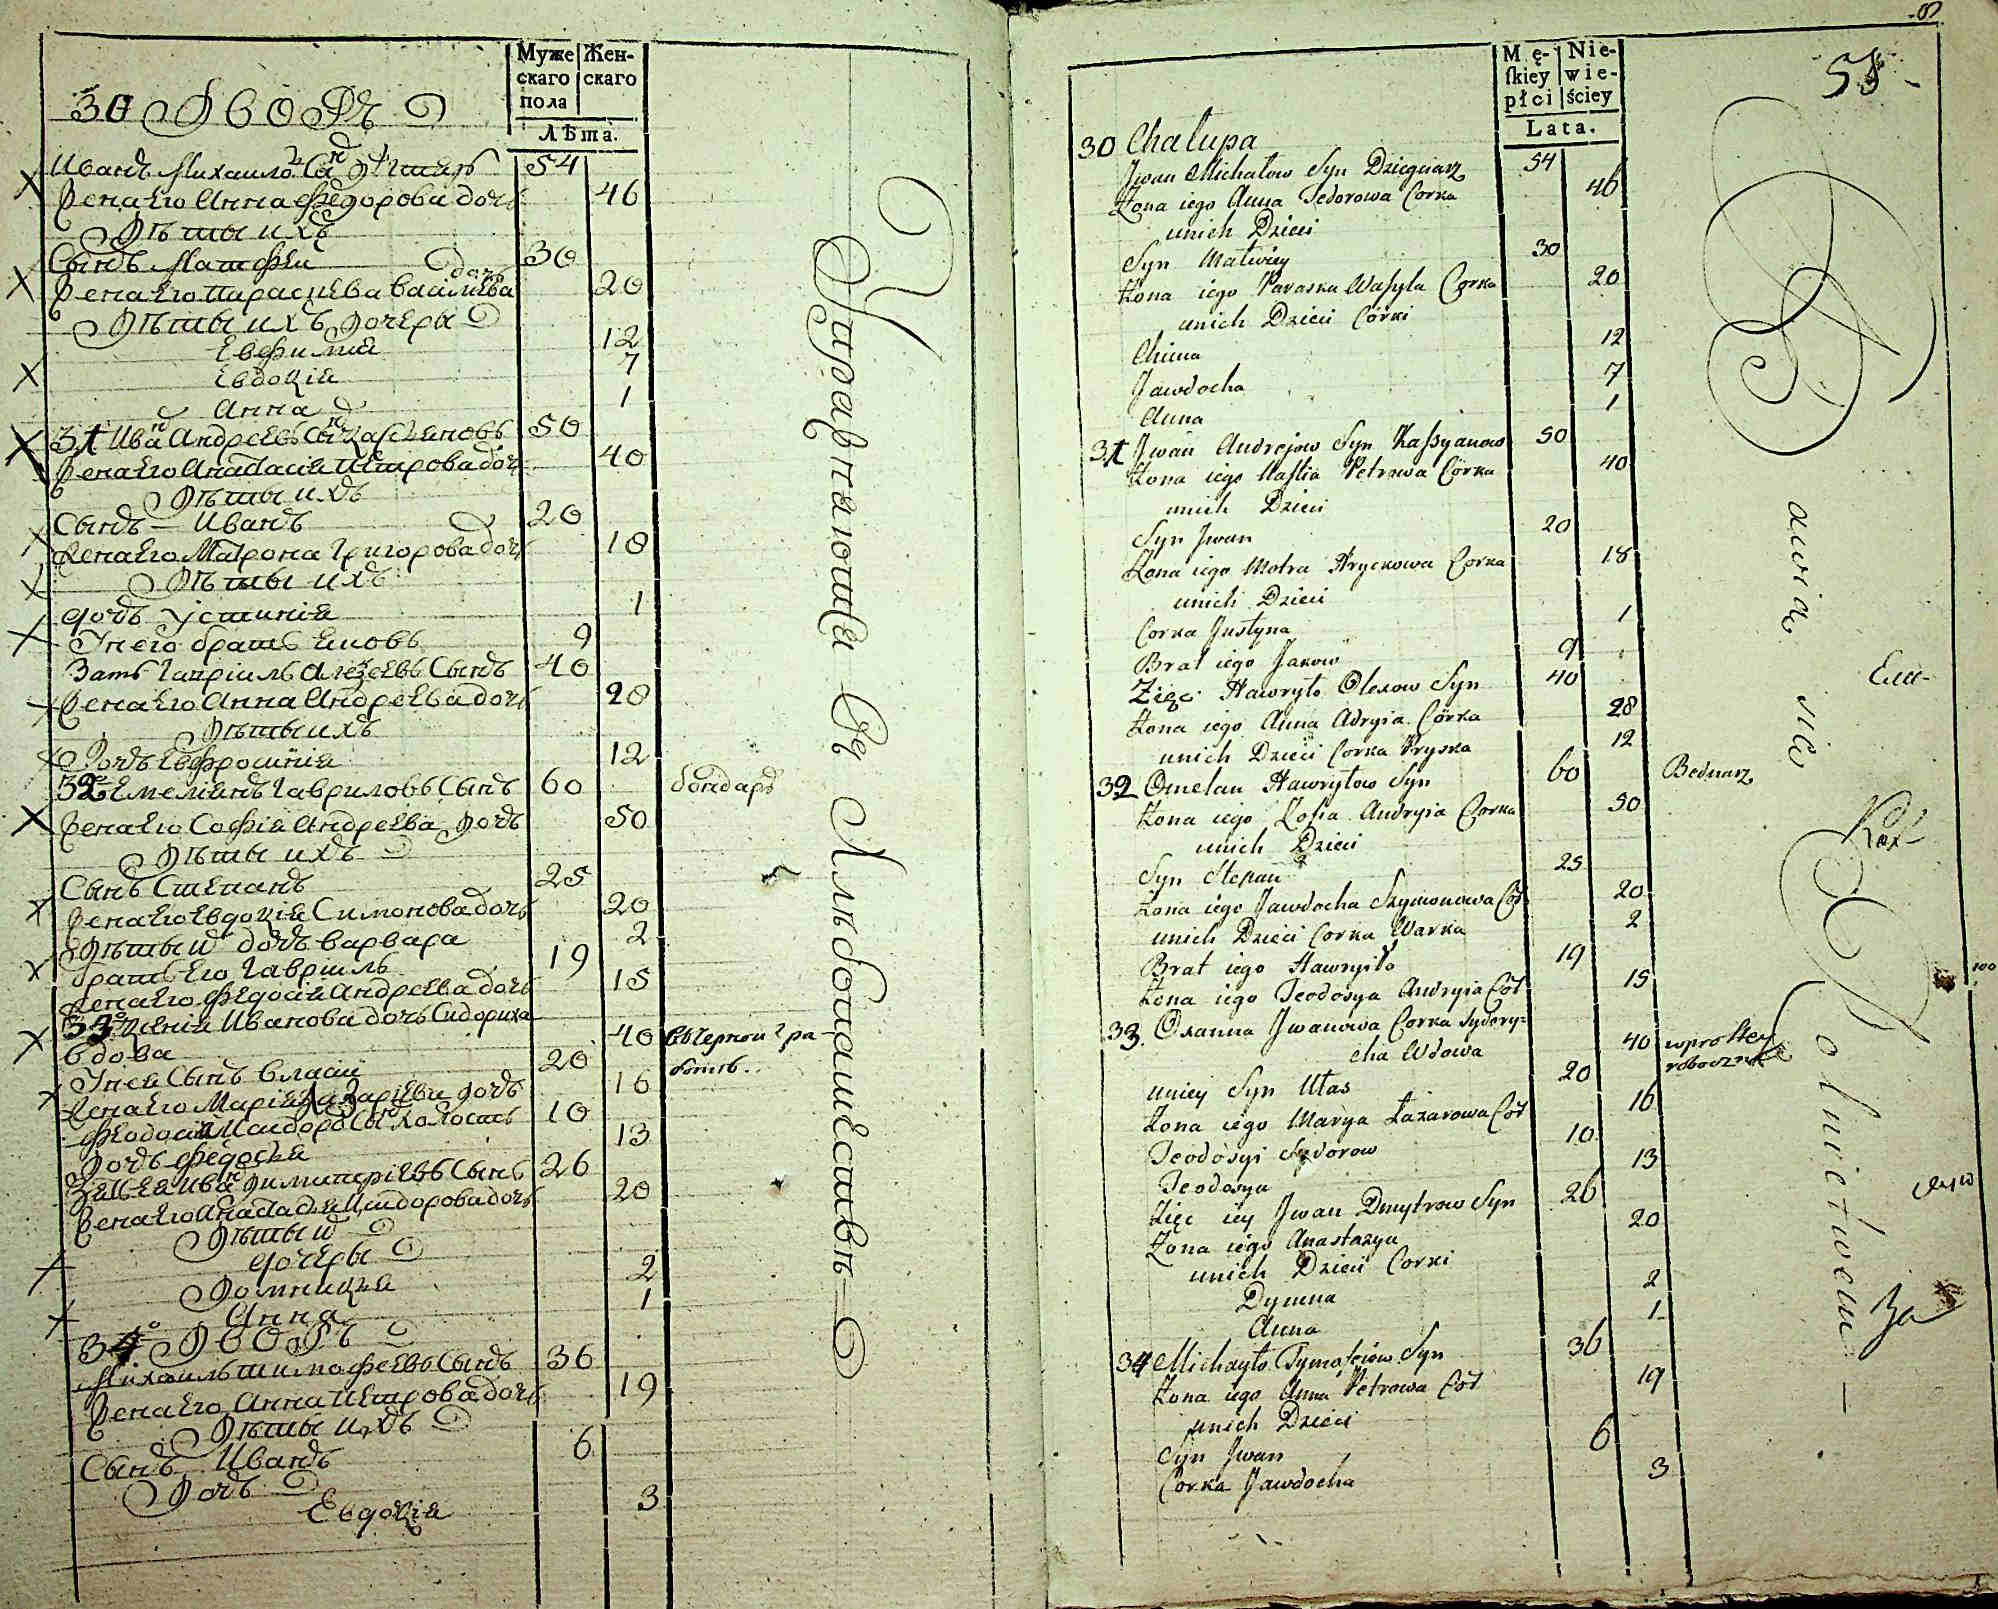 Муже
скаго
пола
Жен-
скаго
Лѣта.
30 Дворъ
Иванъ Михайловъ Сынъ 54
Жена Его Анна Федорова дочь 46
Дѣти ихъ
Сынъ Матфей 30
Жена Его Параскева Василева дочь 20
Дѣти ихъ дочери
Евфимия 12
Евдокия 7
Анна 1
31 Иванъ Андреевъ Сынъ Касияновъ 50
Жена Его Анастасия Петрова дочь 40
Дѣти ихъ
Сынъ Иванъ 20
Жена Его Матрона Григорова дочь 18
Дѣти ихъ
дочь Устиния 1
У него братъ Яковъ 9
Зять Гавриилъ Алексеевъ Сынъ 40
Жена Его Анна Андреева дочь 28
Дѣти ихъ
Дочь Евфросиния 12
32 Емелиянъ Гавриловъ Сынъ 60 бондаръ
Жена Его София Андреева дочь 50
Дѣти ихъ
Сынъ Стефанъ 25
Жена Его Евдокия Симонова дочь 20
Дѣти ихъ дочь Варвара 2
братъ Его Гавриилъ 19
Жена Его Федосия Андреева дочь 15
33 Ксения Иванова дочь Сидориха
вдова 40 въ черной ра-
ботѣ..
У ней Сынъ Власий 20
Жена Его Мария Лазарева дочь 16
Феодосий Исидоровъ Сынъ холостъ 10
Дочь Федоския 13
Зять Ея Иванъ Димитриевъ Сынъ 26
Жена Его Анастасия Исидорова дочь 20
Дѣти ихъ
дочери
Домникия 2
Анна 1
34 Дворъ
Михаилъ Тимофеевъ Сынъ 36
Жена Его Анна Петрова дочь 19
Дѣти ихъ
Сынъ Иванъ 6
Дочь
Евдокия 3
Управляющий Съ Хлѣбопашествѣ
Mę-
ſkiey
płci
Nie-
wie-
ściey
Lata.
58
30 Chalupa
Jwan Michałow Syn Dziegciarz 54
Żona iego Anna Fedorowa Corka 46
unich Dzieci
Syn Matwiey 30
Żona iego Paraska Wasyla Corka 20
unich Dzieci Córki
Chima 12
Jawdocha 7
Anna 1
31 Jwan Andrejow Syn Kassyanow 50
Żona iego Nastia Petrowa Córka 40
unich Dzieci
Syn Jwan 20
Żona iego Motra Hryckowa Corka 18
unich Dzieci
Corka Justyna 1
Brat iego Jakow 9
Zięć Hawryło Olexow Syn 40
Żona iego Anna Adryia Córka 28
unich Dzieci Corka Pryska 12
32 Omelan Hawryłow Syn 60 Bednarz
Żona iego Zofia Andryia Corka 50
unich Dzieci
Syn Stepan 25
Żona iego Jawdocha Szymonowa Cor 20
unich Dzieci Corka Warka 2
Brat iego Hawryiło 19
Żona iego Teodosya Andryia Cor 15
33. Oxanna Jwanowa Corka Sydory-
cha Wdowa 40 w prostey
roboczne
uniey Syn Ułas 20
Żona iego Marya Łazarowa Cor 16
Teodosyi Sydorow 10
Teodosya 13
Zięc iey Jwan Dmytrow Syn 26
Żona iego Anastazya 20
unich Dzieci Corki
Dymna 2
Anna 1
34 Michayło Tymofeiow Syn 36
Żona iego Anna Petrowa Cor 19
unich Dzieci
Syn Jwan 6
Corka Jawdocha 3
Bawią się Rolnictwem
За